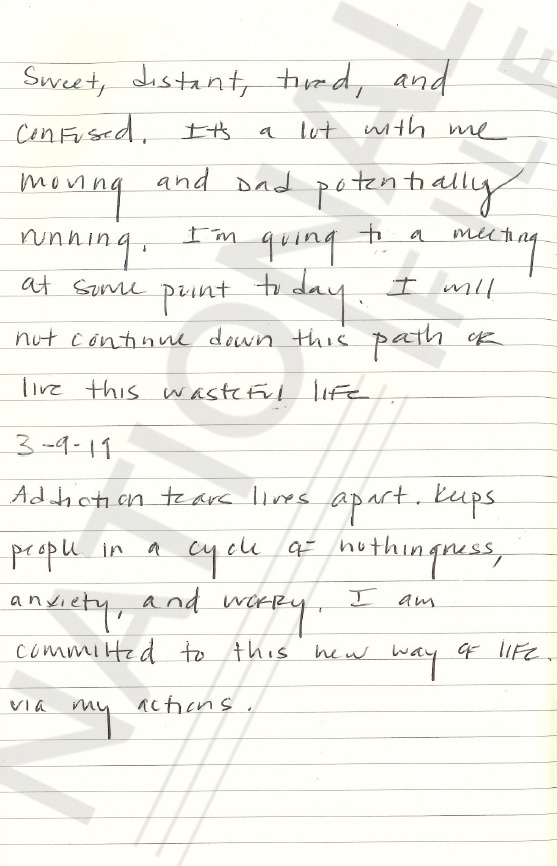 Sweet, distant, tired, and
confused. It's a lot with me
moving and Dad potentially
running. I'm going to a meeting
at some point today. I will
not continue down this path or
live this wasteful life.
3-9-19
Addiction tears lives apart. Keeps
people in a cycle of nothingness,
anxiety, and worry. I am
committed to this new way of life.
via my actions.
NATIONAL
FILE